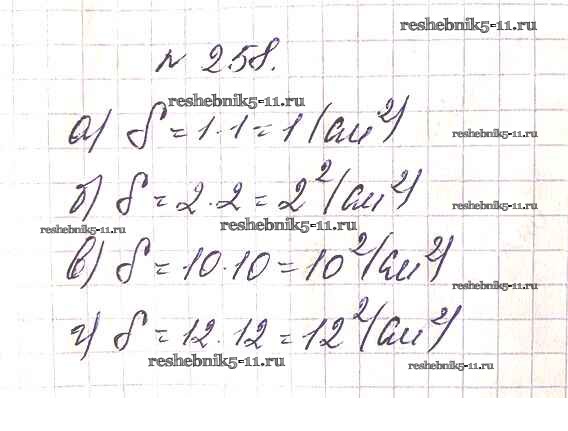 reshebnik5-11.ru
№ 258.
reshebnik5-11.ru
а) S = 1 · 1 = 1 (см²)
reshebnik5-11.ru
б) S = 2 · 2 = 2² (см²)
reshebnik5-11.ru
reshebnik5-11.ru
reshebnik5-11.ru
в) S = 10 · 10 = 10² (см²)
reshebnik5-11.ru
г) S = 12 · 12 = 12² (см²)
reshebnik5-11.ru
reshebnik5-11.ru